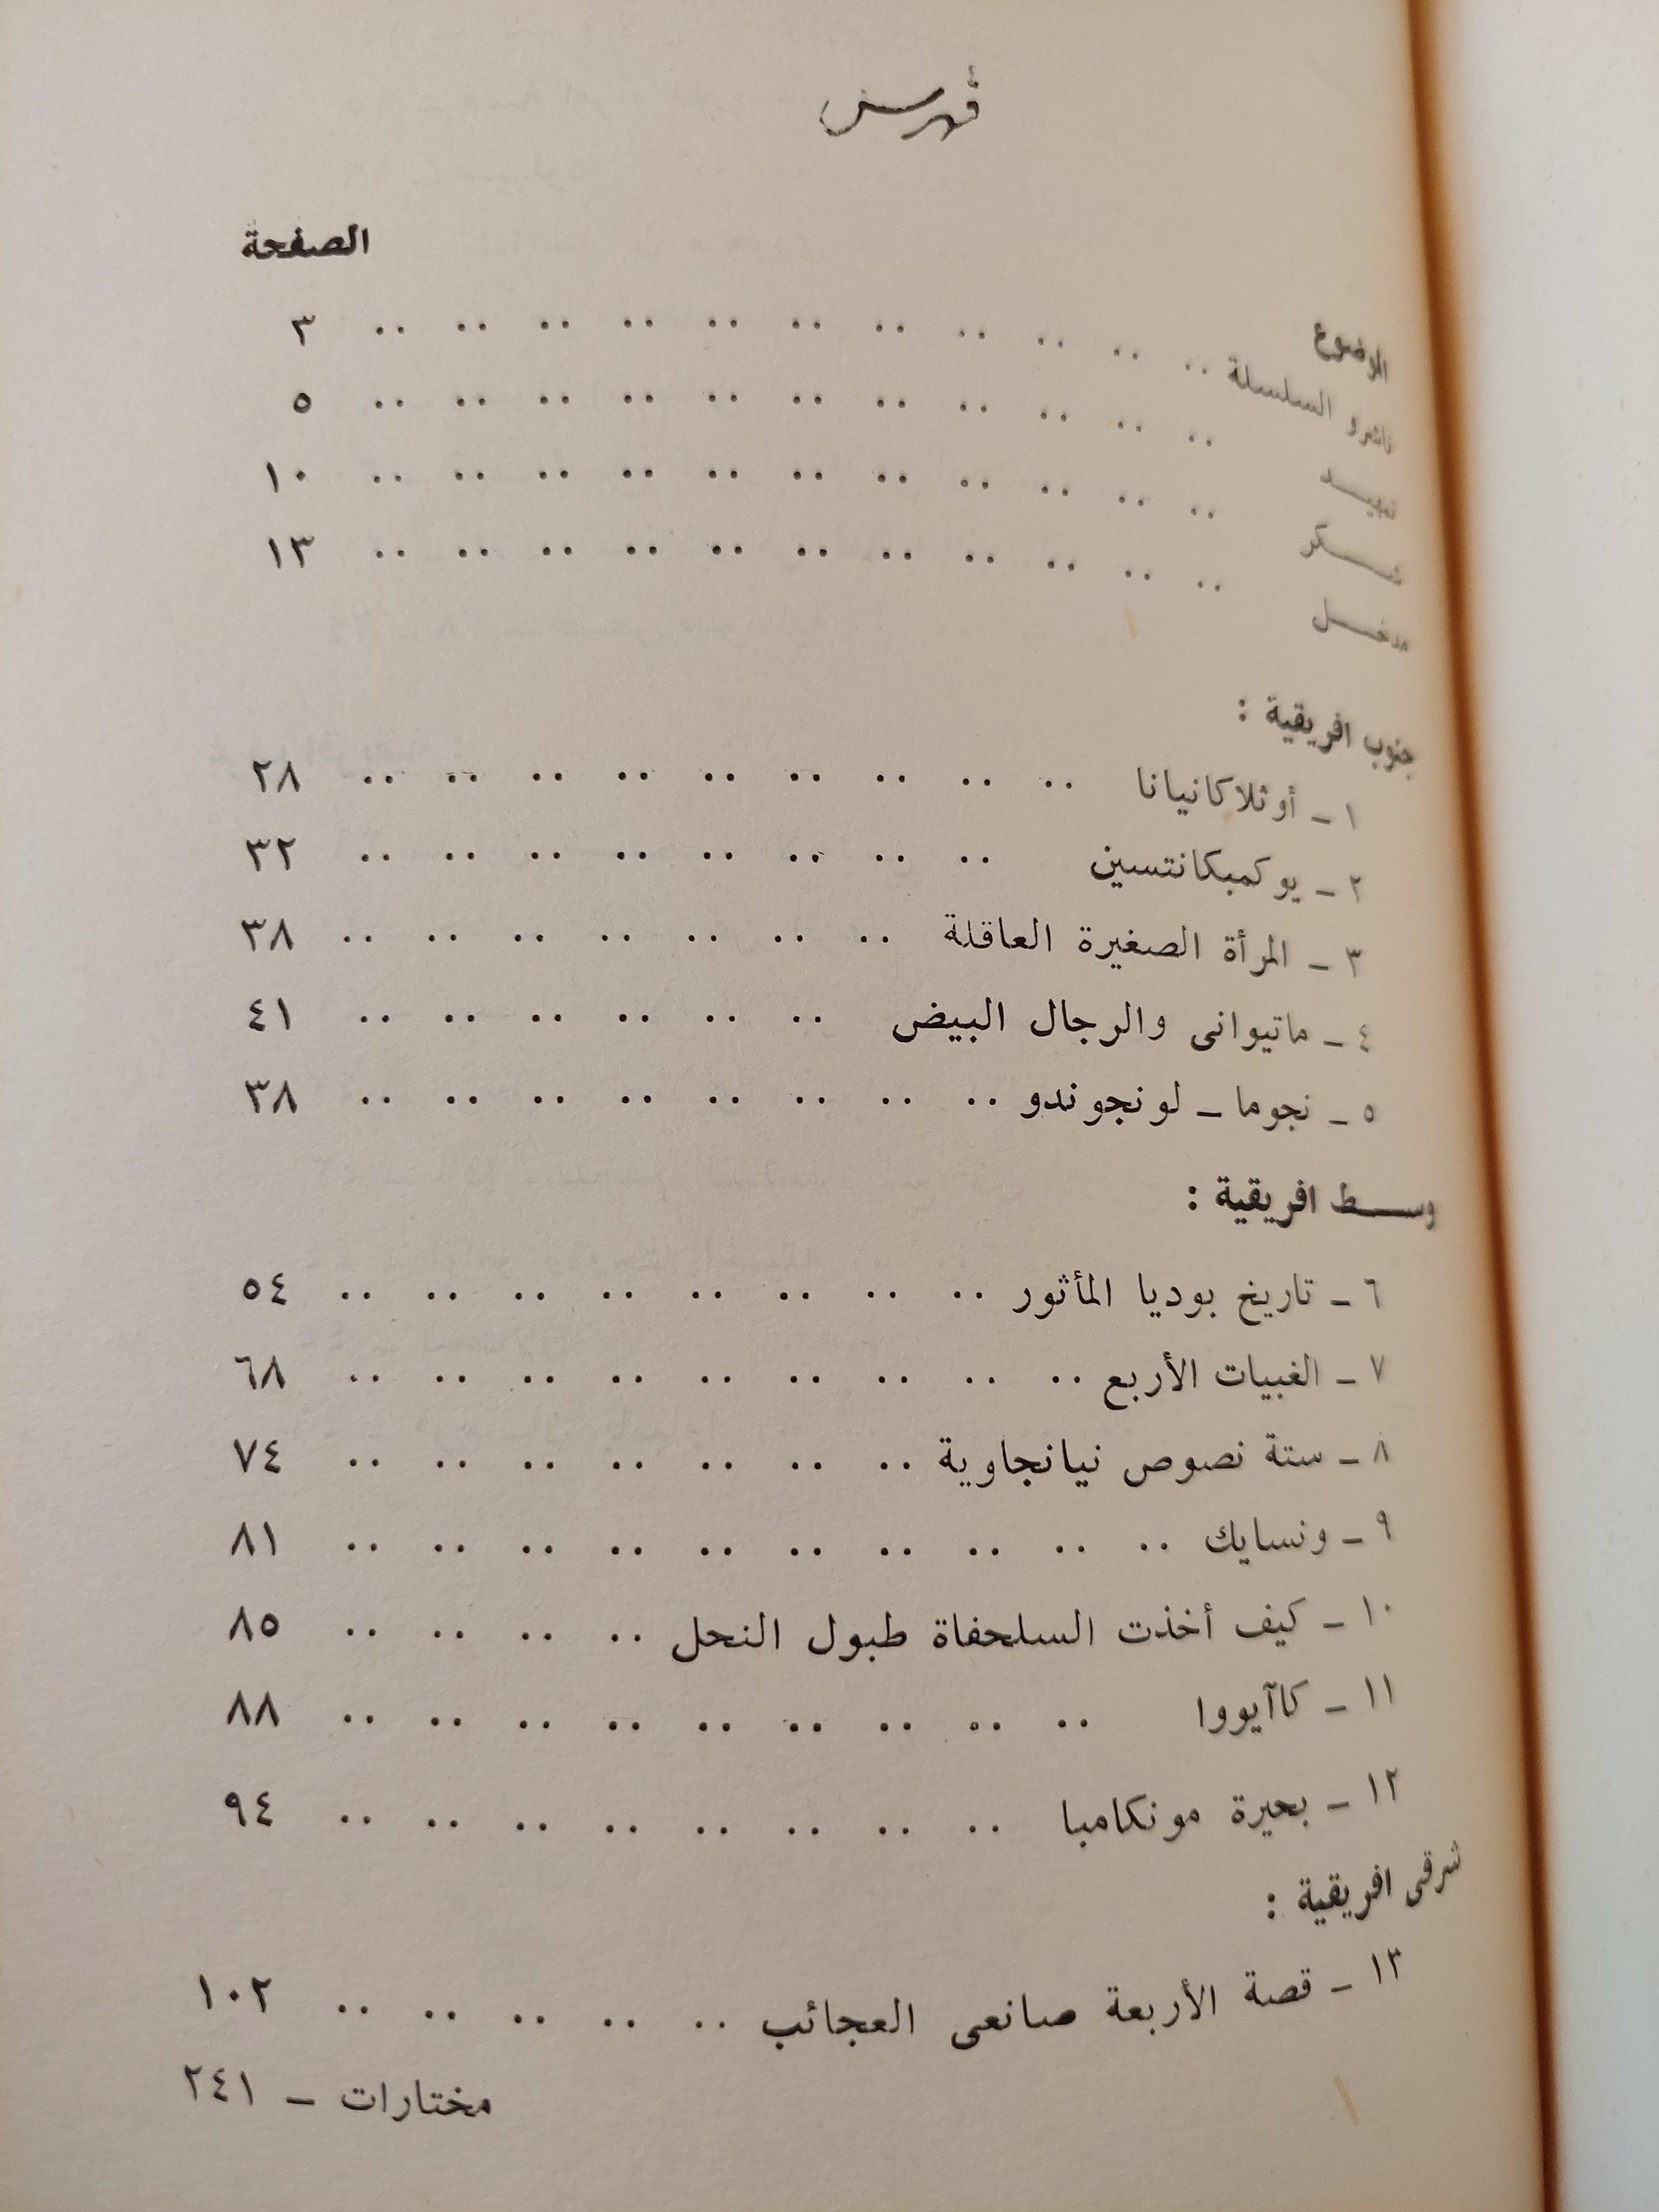 فهرس
الموضوع الصفحة
ناشرو السلسلة ٣
تمهيد ٥
شكر ١٠
مدخل ١٣
جنوب افريقية :
١ - أوثلاكانيانا ٢٨
٢ - يوكمبكانتسين ٣٢
٣ - المرأة الصغيرة العاقلة ٣٨
٤ - ماتيوانى والرجال البيض ٤١
٥ - نجوما - لونجوندو ٣٨
وسط افريقية :
٦ - تاريخ بوديا المأثور ٥٤
٧ - الغبيات الأربع ٦٨
٨ - ستة نصوص نيانجاوية ٧٤
٩ - ونسايك ٨١
١٠ - كيف أخذت السلحفاة طبول النحل ٨٥
١١ - كاآيووا ٨٨
١٢ - بحيرة مونكامبا ٩٤
شرقى افريقية :
١٣ - قصة الأربعة صانعى العجائب ١٠٢
مختارات - ٢٤١